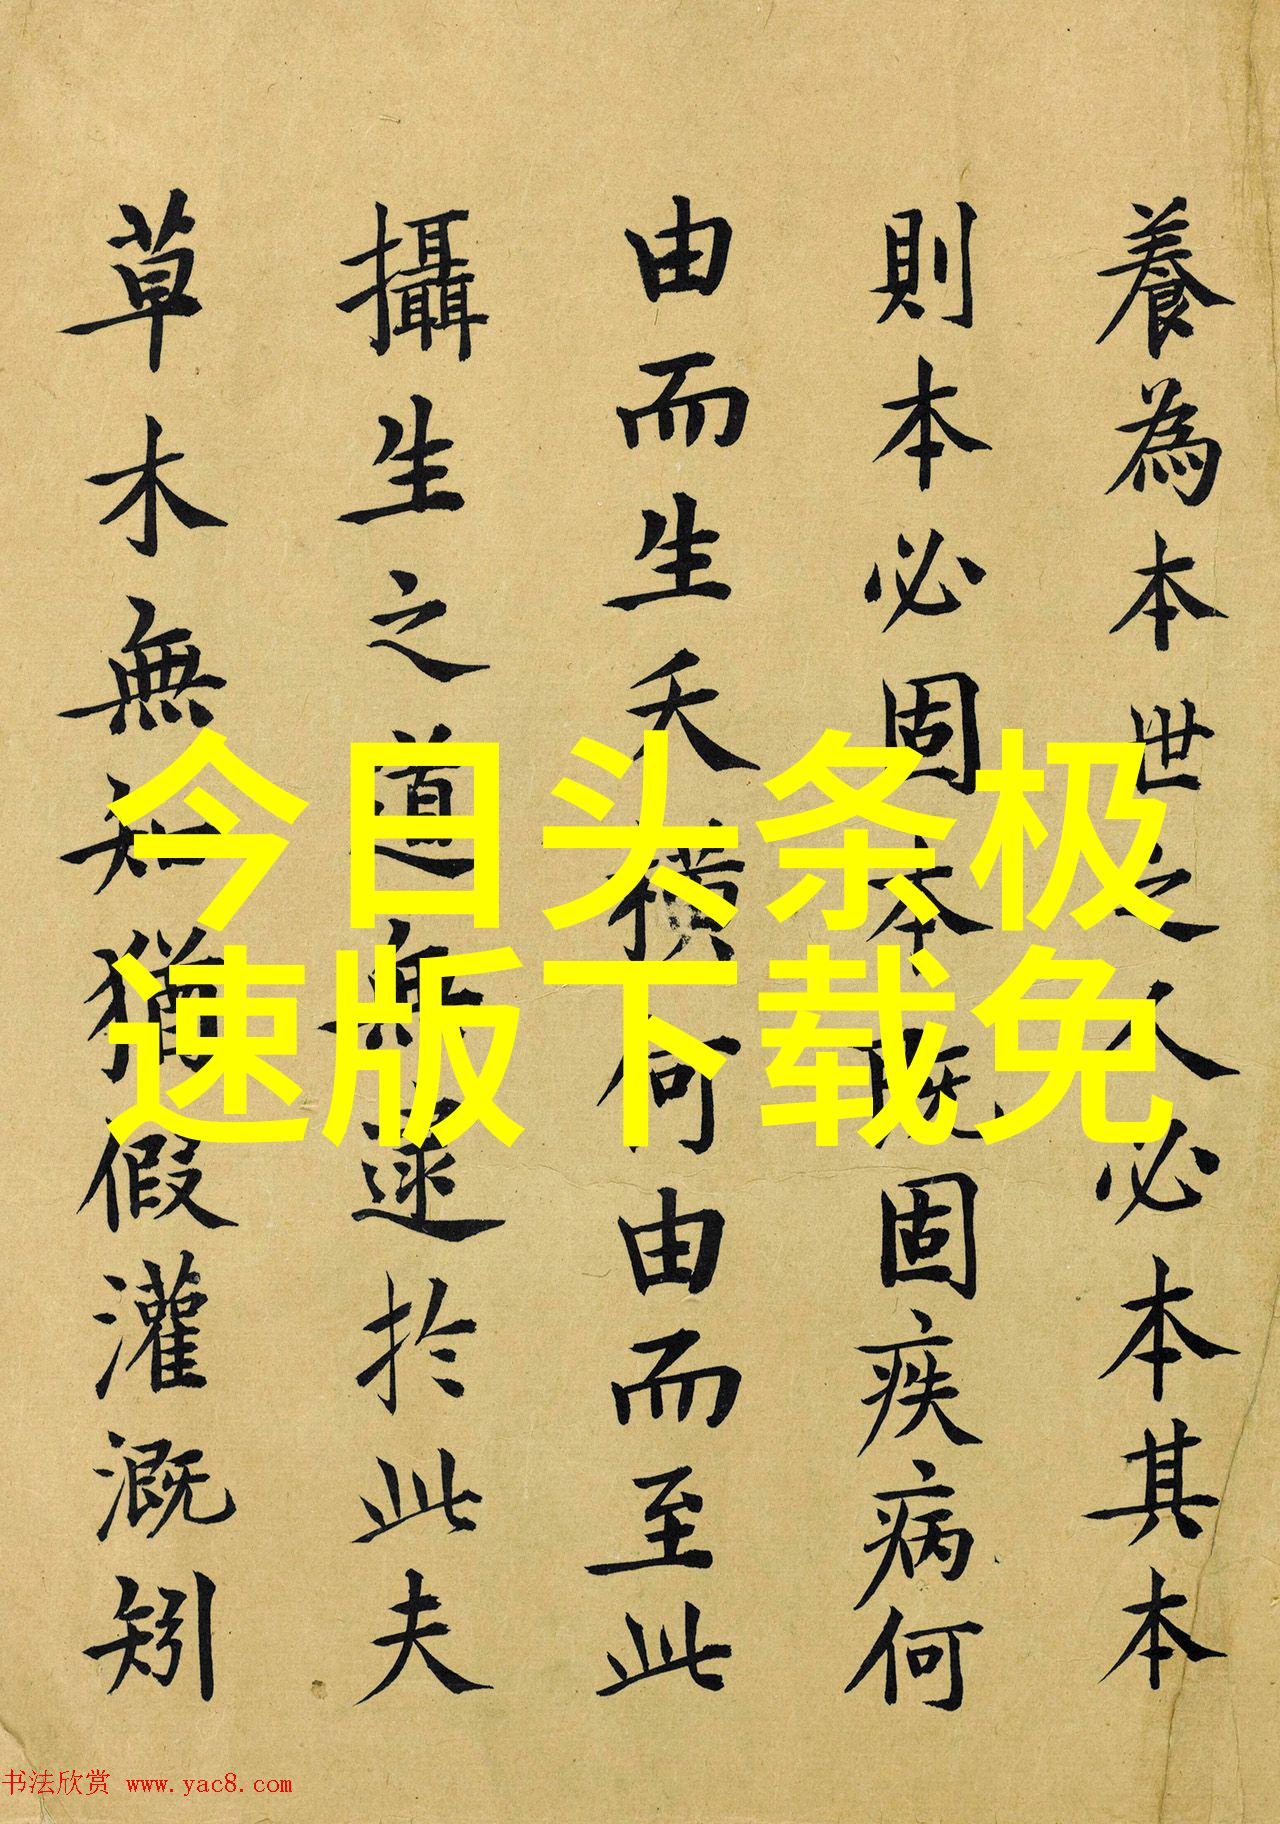 養為本世之人必本其本
則本必固本既固疾病何
由而生夭橫何由而至此
攝生之道無逮於此夫
草木無知猶假灌溉矧
今日头条极
速版下载免
书法欣赏 www.yac8.com